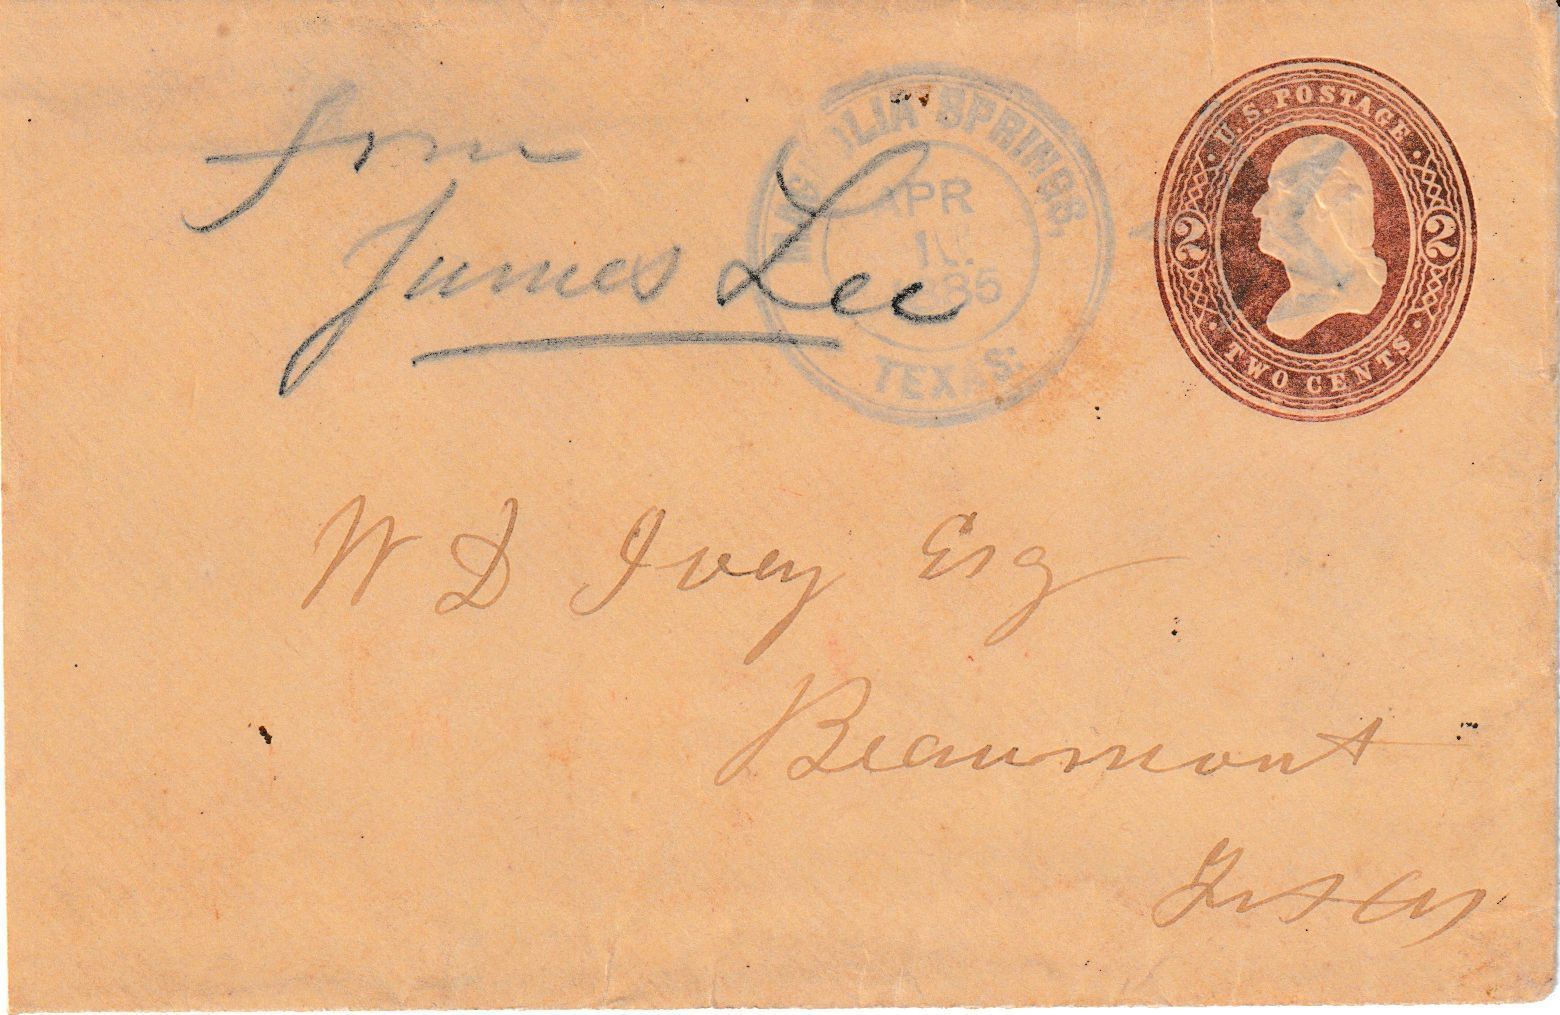 from
James Lee
MAGNOLIA SPRINGS,
APR
1885
TEXAS.
U.S. POSTAGE
2 2
TWO CENTS
W D Ivey Esq
Beaumont
Texas